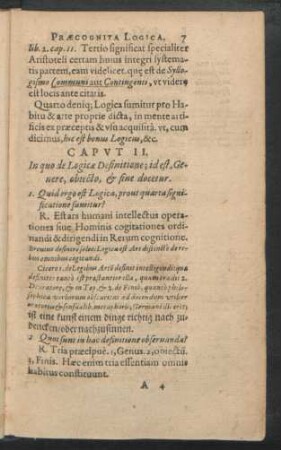 PRÆCOGNITA LOGICA. 7
lib. 2. cap. 11. Tertio significat specialiter
Aristoteli certam huius integri systema-
tis partem, eam videlicet, quę est de Syllo-
gismo Communi aut Contingenti, vt videre
est locis ante citatis.
Quarto deniq; Logica sumitur pro Ha-
bitu & arte proprie dicta, in mente arti-
ficis ex præceptis & vsu acquisitâ. vt, cum
dicimus, hic est bonus Logicus, &c.
CAPVT II.
In quo de Logicæ Definitione, id est, Ge-
nere, obiecto, & fine docetur.
1. Quid ergo est Logica, prout quarta signi-
ficatione sumitur?
R. Est ars humani intellectus opera-
tiones siue Hominis cogitationes ordi-
nandi & dirigendi in Rerum cognitione.
Breuius definire soles: Logica est Ars dicendi de re-
bus
Cicero 1. de Legibus
definiri
Oratore, &
ist eine kunst einem dinge richtig nach zu
dencken/oder nachzusinnen.
2. Quæ sunt in hac definitione obseruanda?
R. Tria præcipuè. 1. Genus. 2. obiectũ.
3. Finis. Hæc enim tria essentiam omnis
habitus constituunt.
A 4